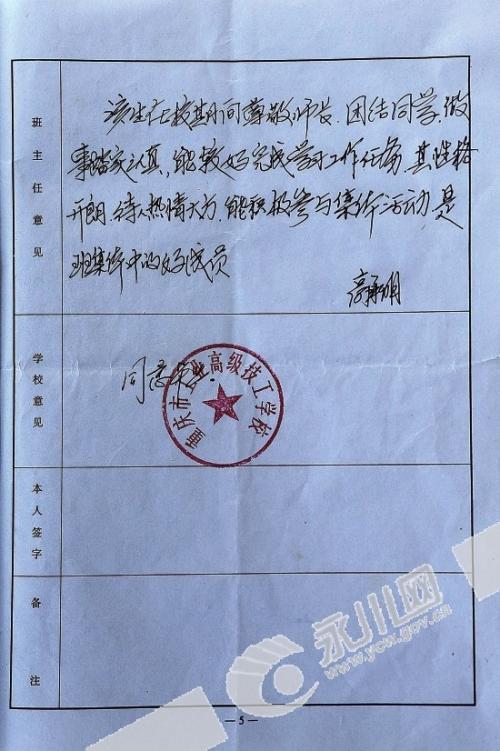 班主任意见
该生在校期间尊敬师长、团结同学,做
事踏实认真,能较好完成学习工作任务,其性格
开朗,待人热情大方,能积极参与集体活动,是
班集体中的好成员
学校意见
同意毕业
重庆市 业高级技工学校
本人签字
备注
永川网
www.ycw.gov.cn
—5—